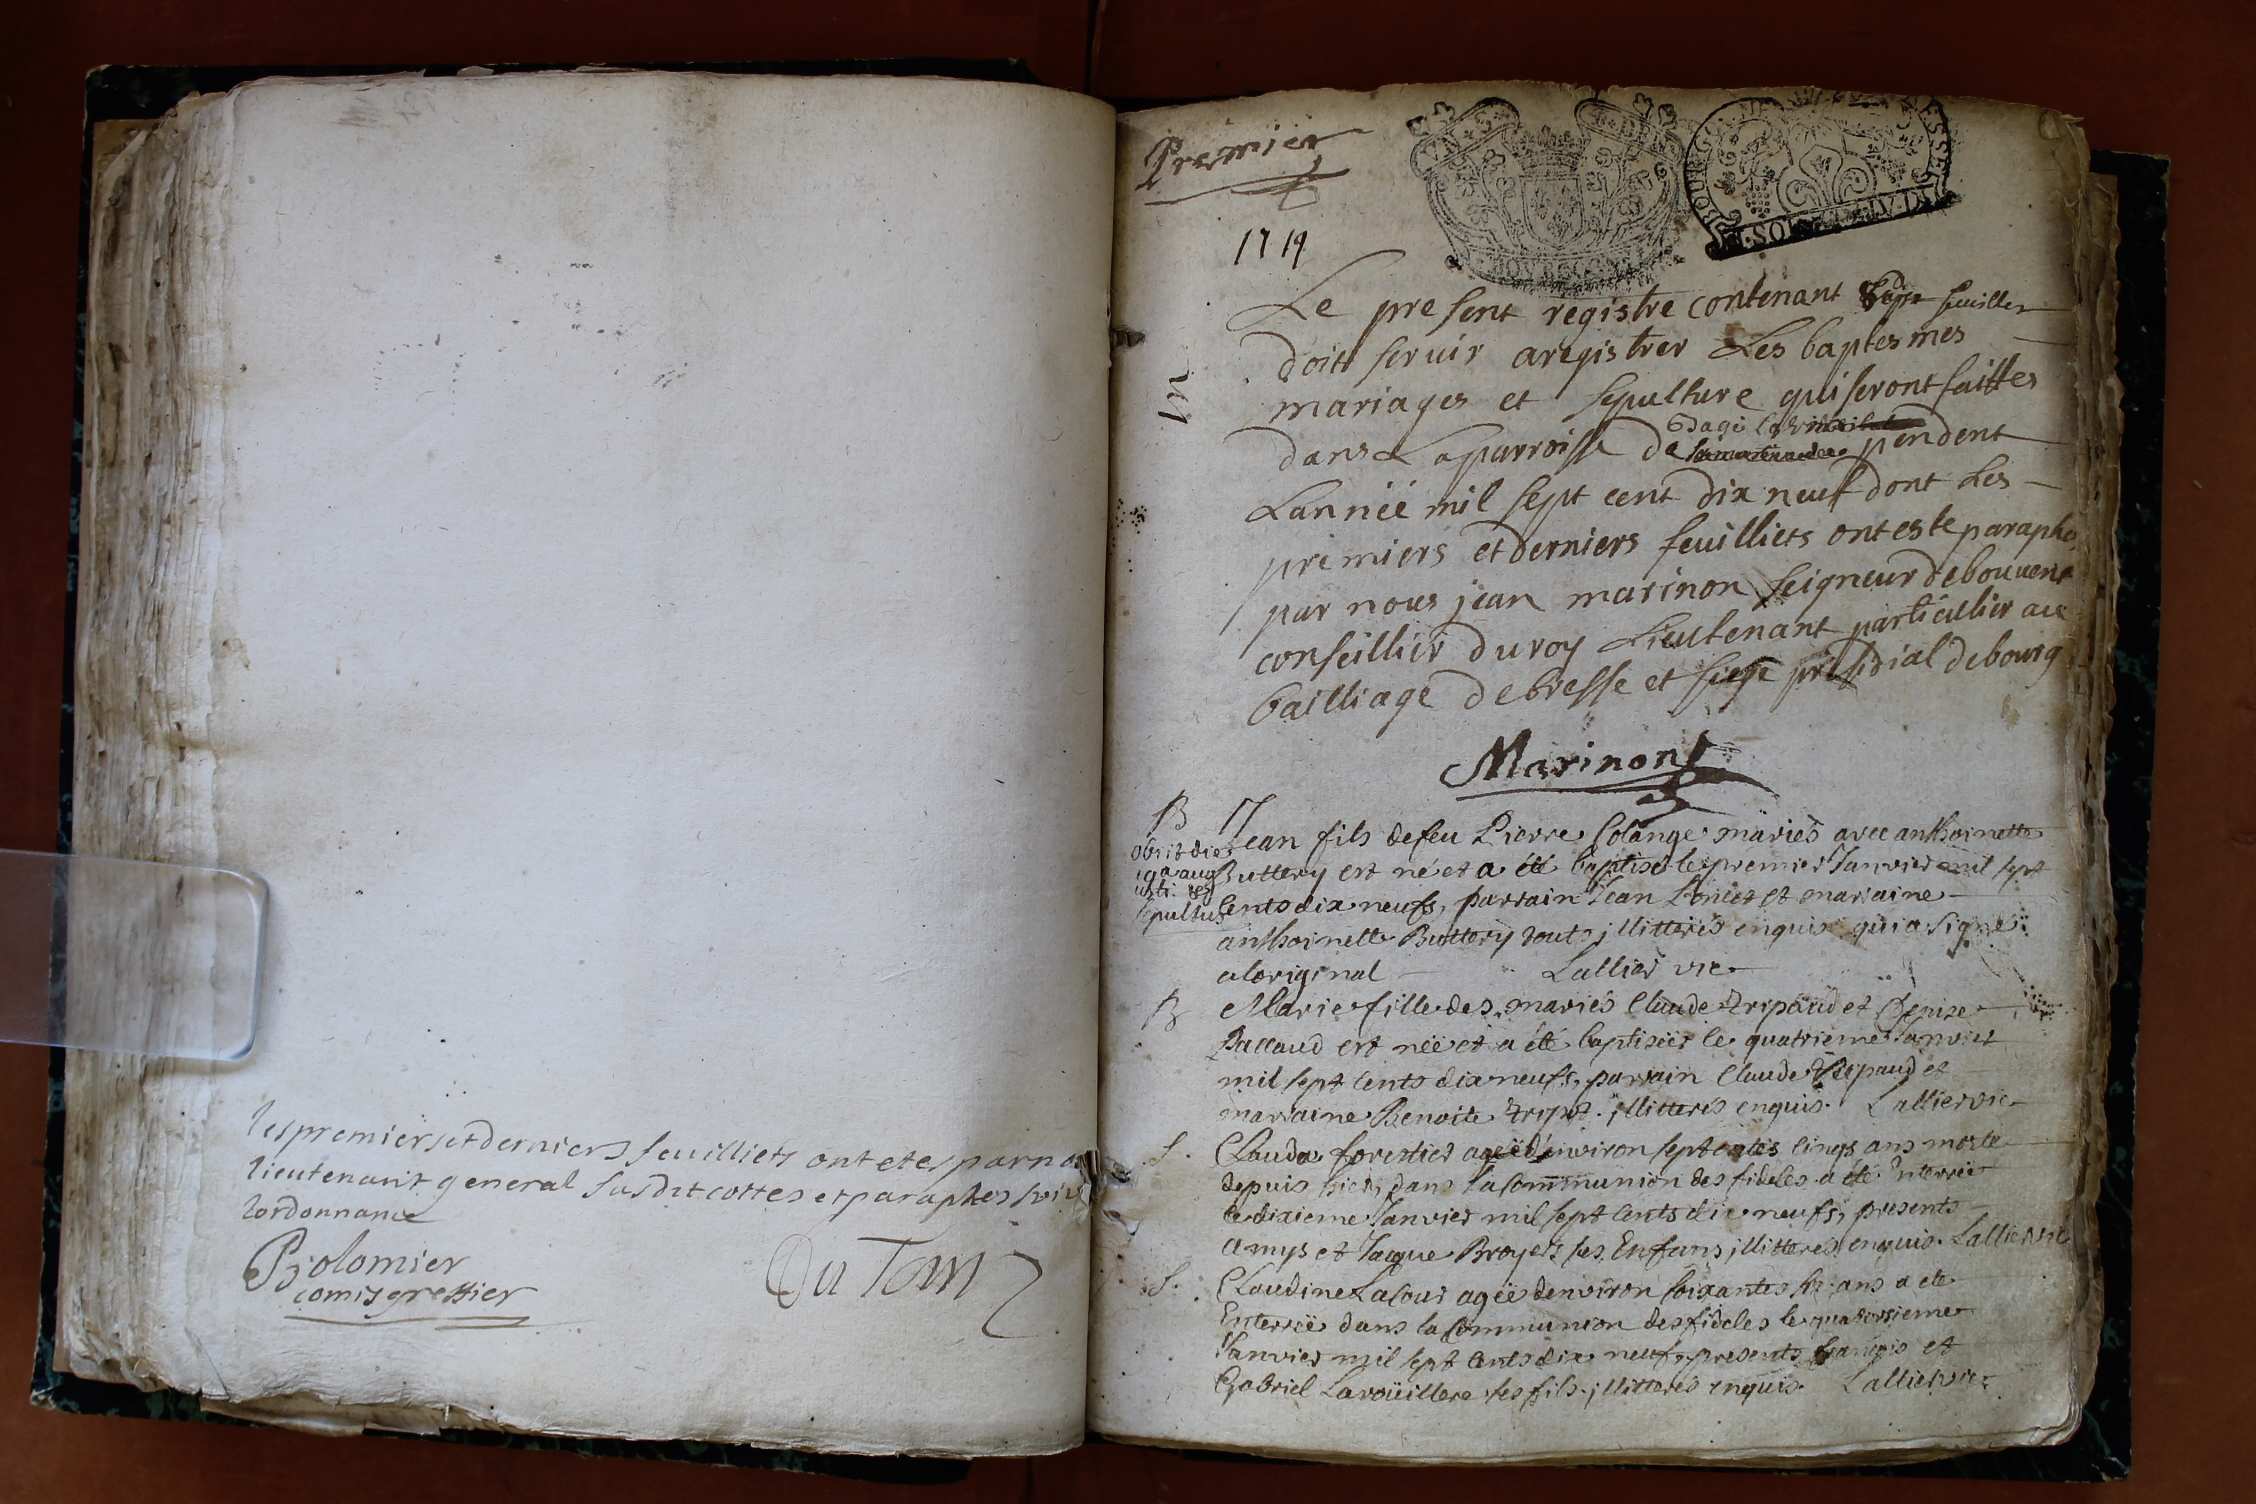 les premiers et derniers feuilliets ont etes par no
lieutenant general susdit cottes et paraphes suiv
lordonnance
Bolomier
comis greffier
Premier
1719
Le present registre contenant feuillets
doit servir a registrer Les baptesmes
mariages et sepulture qui seront faittes
Dagé la ville
dans La parroisse de pendent
Lannéé mil sept cent dix neuf dont Les
premiers et derniers feuilliets ont este paraphe
par nous jean marinon seigneur de bouuent
conseillier du roy Lieutenant particullier au
bailliage de bresse et siege presidial de bourg
Marinon
B
Jean fils de feu Pierre Colange mariés avec anthoinette
Buttery est né et a été baptisé le premier Janvier mil sept
Cents dix neufs, parrain Jean et marraine
anthoinette Buttery touts illitterés enquis qui a signé
a loriginal Lallier vic
obiit die
19a aug
usti et
sepultus
B
Marie fille des mariés Claude tripaud et Denize
Baccaud est néé et a été baptiséé le quatrieme Janvier
mil sept cents dix neufs, parrain Claude tripaud et
marraine Benoite illitterés enquis. Lallier vic
S.
Clauda forestier agéé d'environ septantes cinqs ans morte
depuis hier, dans la Communion des fideles a été Enterréé
le dixieme Janvier mil sept Cents dix neufs, presents
amys et Jacque Broyers ses Enfans illitterés enquis. Lallier vic
S.
Claudine Lacour agéé denviron soixantes six ans a été
Enterréé dans la Communion des fideles le quatorzieme
Janvier mil sept Cents dix neufs presents françois et
Gabriel Lavoüillere ses fils illitterés enquis. Lallier vic